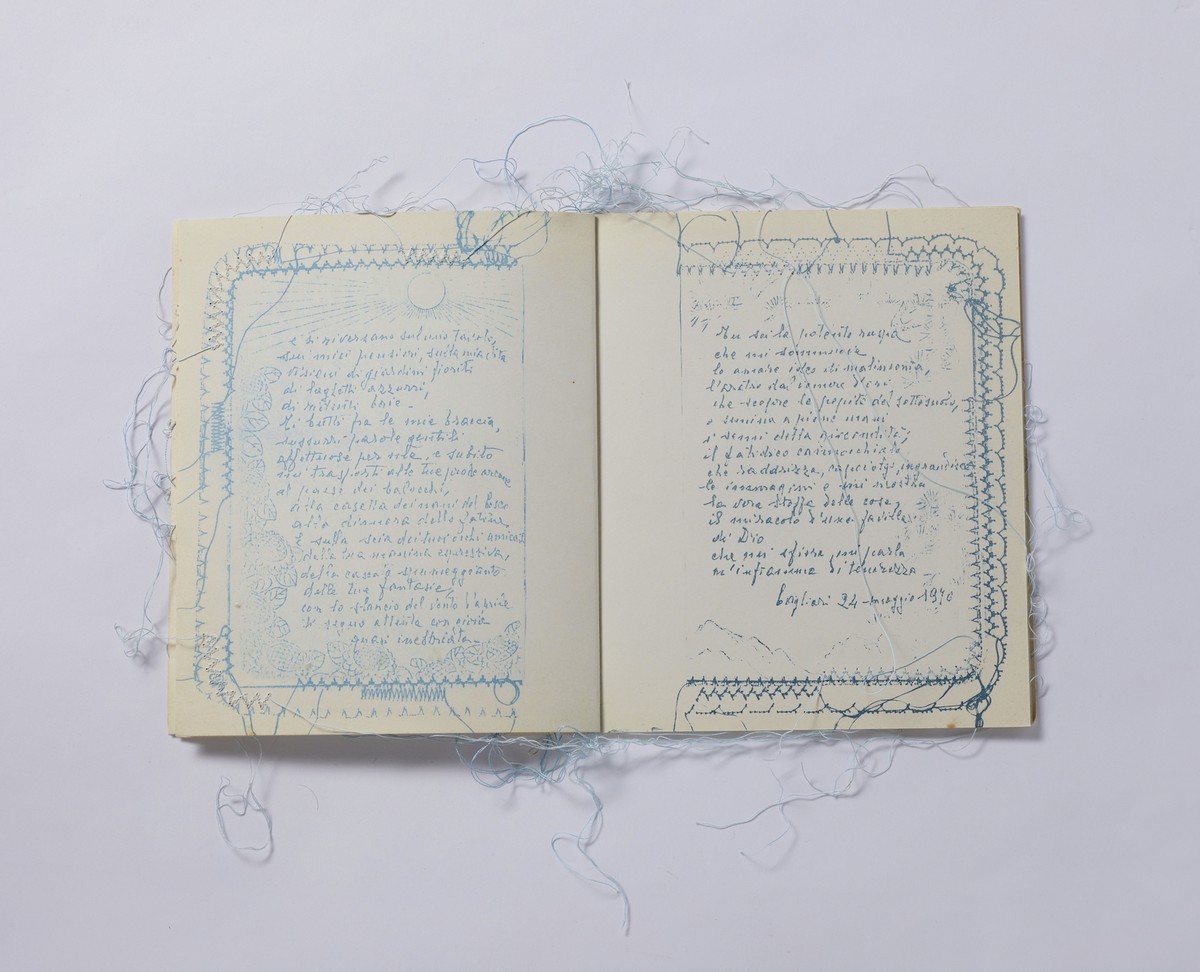 e si riversano sul mio tavolo,
sui miei pensieri, sulla mia vita
visioni di giardini fioriti
di laghetti azzurri,
di minuti baie.
Ti butti fra le mie braccia,
sussurri parole gentili
affettuose per me, e subito
mi trasporti alle tue prode arcane
al paese dei balocchi,
alla casetta dei nani del bosco
alla dimora delle fatine
E sulla scia dei luoghi
della tua manina espressiva,
della cascata spumeggiante
delle tue fantasie,
con lo slancio del vento d'aprile
ti seguo attenta con gioia
quasi inebriata.
Tu sei la potente ruspa
che mi sommuove
le amare idee di malinconia,
l'aratro dal vomere d'oro
che scopre le pepite del sottosuolo,
e semina a piene mani
i semi della giocondità,
il fatidico cannocchiale
che raddrizza, capovolge, ingrandisce
le immagini e mi mostra
la vera stoffa delle cose,
il miracolo d'una favilla
di Dio
che mi sfiora, mi parla
m'infiamma di tenerezza
Cagliari 24 maggio 1970